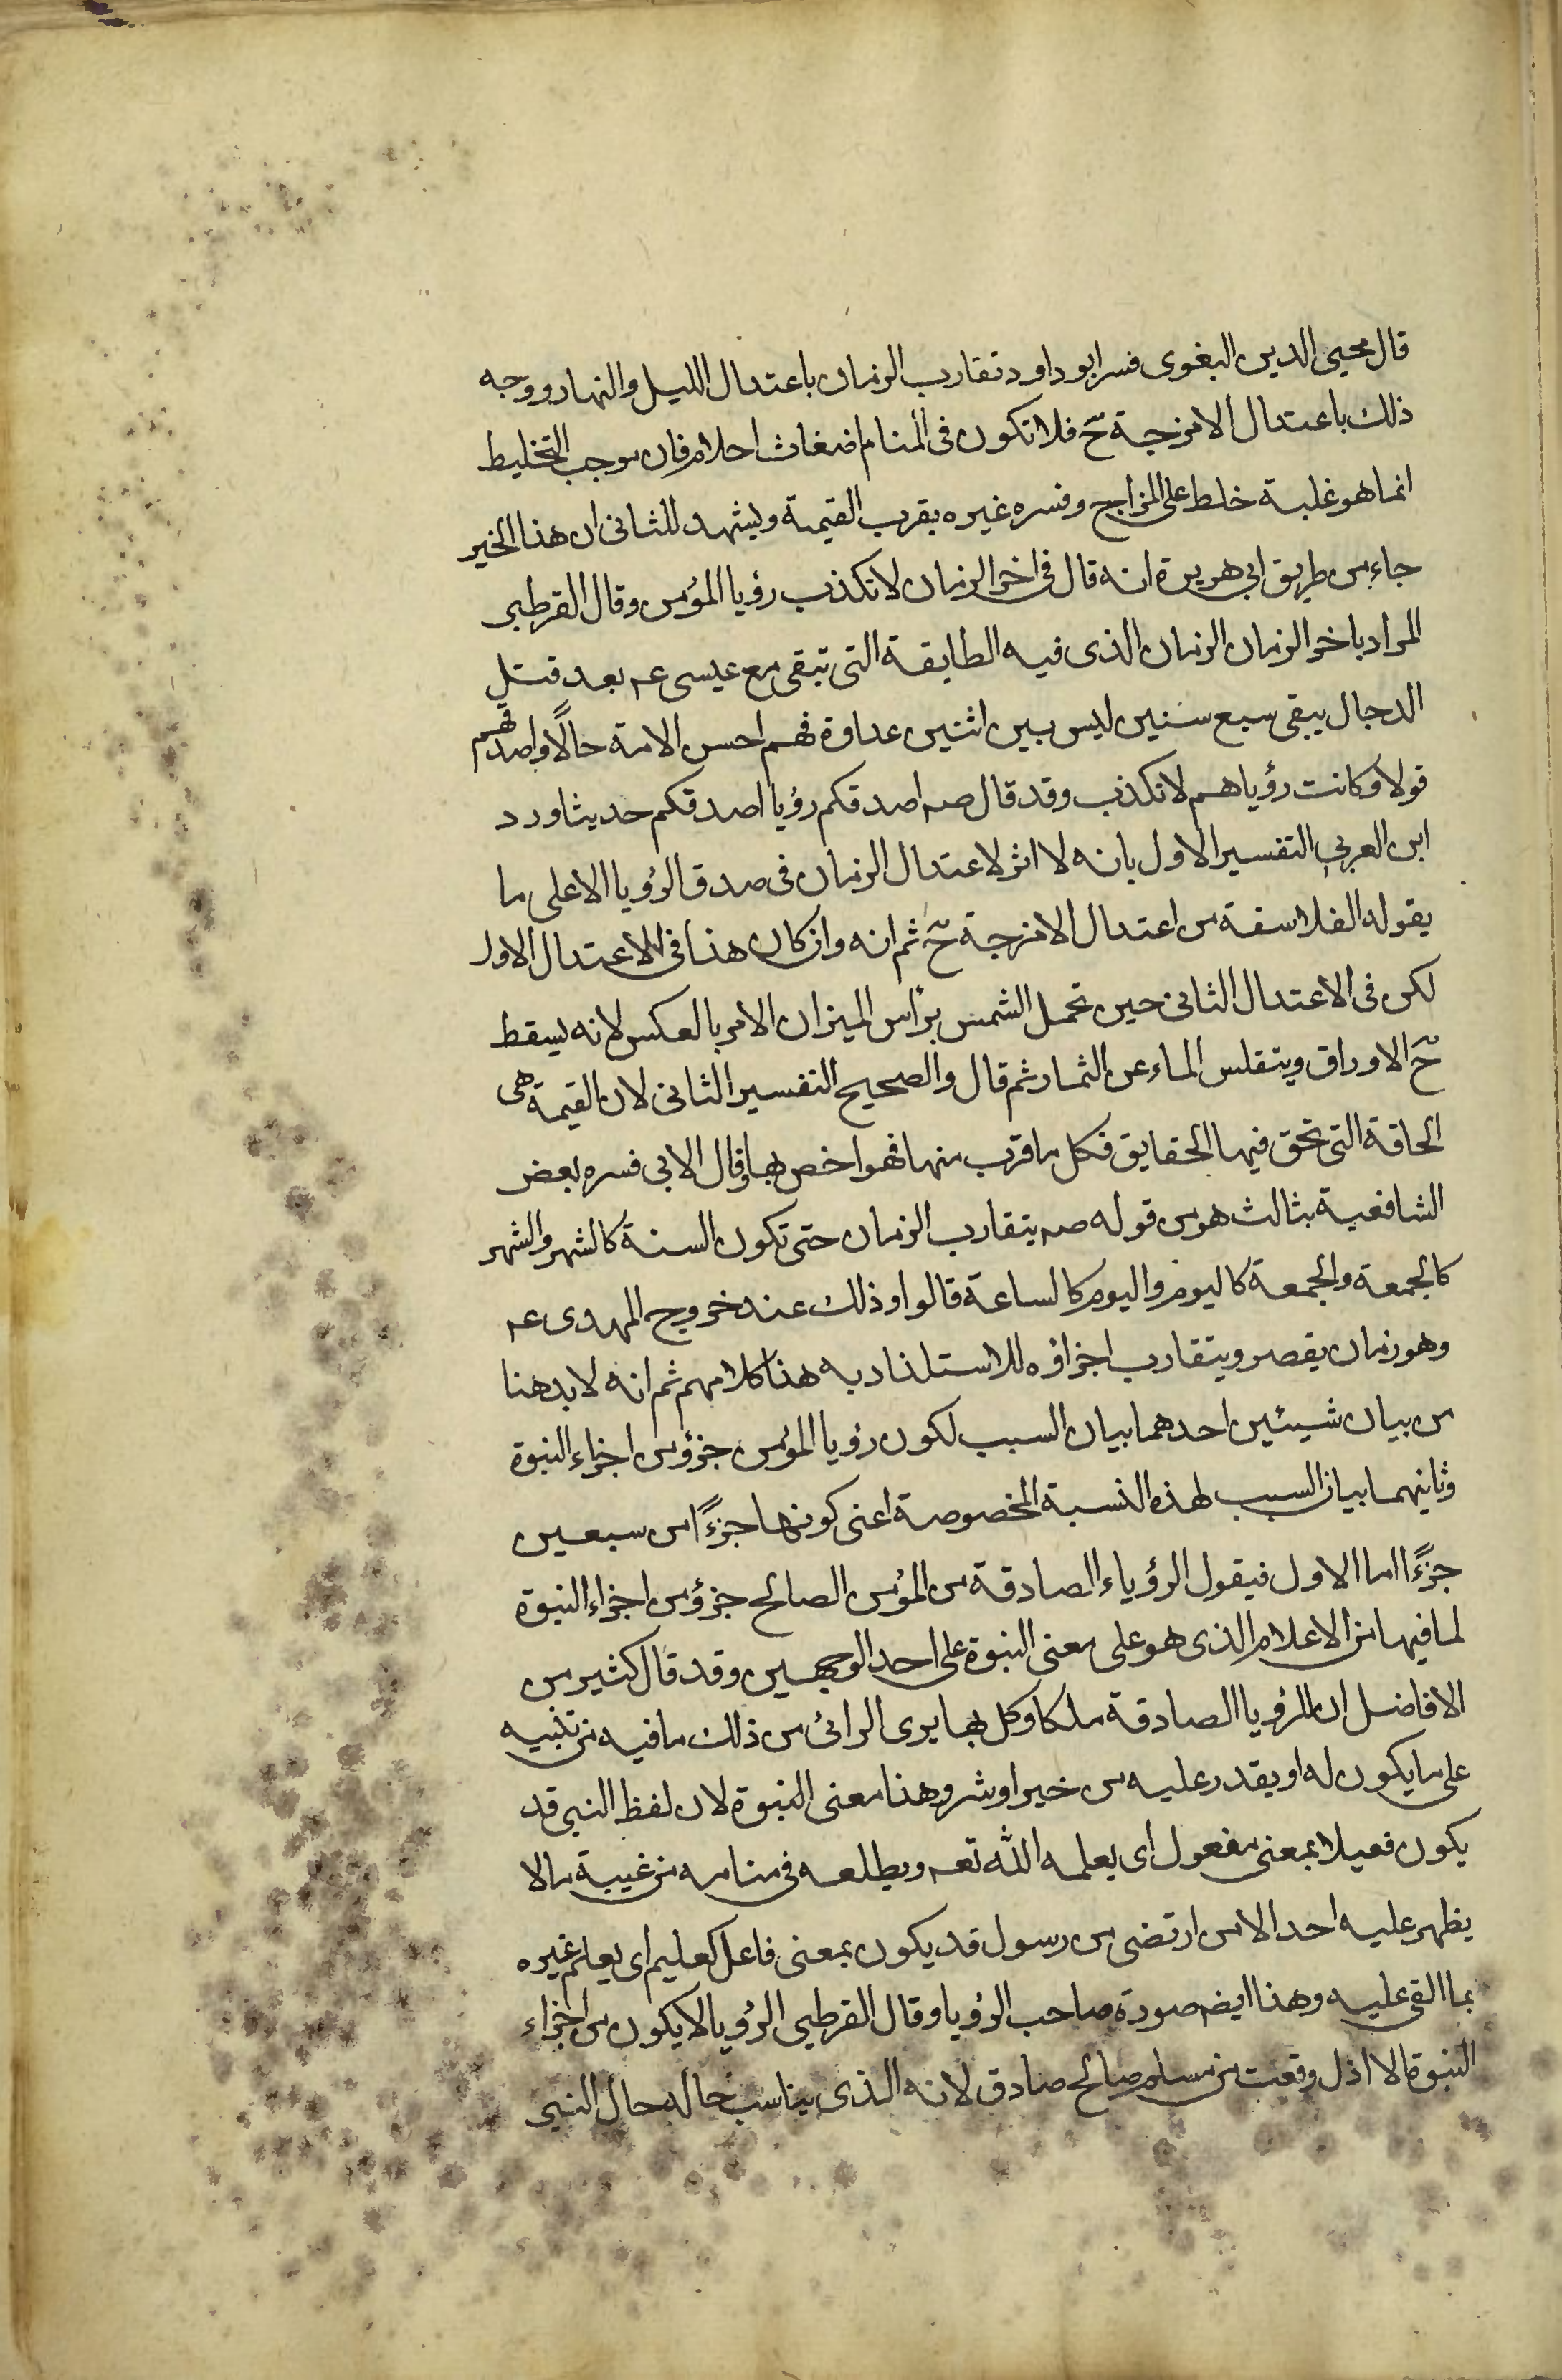 قال محيى الدين البغوى فسر ابو داود تقارب الزمان باعتدال الليل والنهار ووجه
ذلك باعتدال الامزجة ح فلا تكون فى المنام اضغاث احلام فان موجب التخليط
انما هو غلبة خلط على المزاج وفسره غيره بقرب القيمة ويشهد للثانى ان هذا الخبر
جاء من طريق ابى هريرة انه قال فى اخر الزمان لا تكذب رؤيا المؤمن وقال القرطبى
المراد باخر الزمان الزمان الذى فيه الطايفة التى تبقى مع عيسى عم بعد قتل
الدجال يبقى سبع سنين ليس بين اثنين عداوة فهم احسن الامة حالًا واصدقهم
قولا وكانت رؤياهم لا تكذب وقد قال صم اصدقكم رؤيا اصدقكم حديثا ورد
ابن العربى التفسير الاول بانه لا اثر لاعتدال الزمان فى صدق الرؤيا الا على ما
يقوله الفلاسفة من اعتدال الامزجة ح ثم انه وان كان هذا فى الاعتدال الاول
لكن فى الاعتدال الثانى حين تحمل الشمس براس الميزان الامر بالعكس لانه يسقط
ح الاوراق ويتقلس الماء عن الثمار ثم قال والصحيح التفسير الثانى لان القيمة هى
الحاقة التى تحق فيها الحقايق فكل ما قرب منها فهو اخص بها وقال الابى فسره بعض
الشافعية بثالث هو من قوله صم يتقارب الزمان حتى تكون السنة كالشهر والشهر
كالجمعة والجمعة كاليوم واليوم كالساعة قالوا وذلك عند خروج المهدى عم
وهو زمان يقصر ويتقارب اجزاؤه للاستلذاذ به هذا كلامهم ثم انه لا بد هنا
من بيان شيئين احدهما بيان السبب لكون رؤيا المؤمن جزؤ من اجزاء النبوة
وثانيهما بيان السبب لهذه النسبة المخصوصة اعنى كونها جزءًا من سبعين
جزءًا اما الاول فيقول الرؤياء الصادقة من المؤمن الصالح جزؤ من اجزاء النبوة
لما فيها من الاعلام الذى هو على معنى النبوة على احد الوجهين وقد قال كثير من
الافاضل ان للرؤيا الصادقة ملكا وكل بها يرى الرائى من ذلك ما فيه من تنبيه
على ما يكون له او يقدر عليه من خير او شر وهذا معنى النبوة لان لفظ النبى قد
يكون فعيلا بمعنى مفعول اى يعلمه الله تعم ويطلعه فى منامه من غيبة ما لا
يظهر عليه احد الا من ارتضى من رسول قد يكون بمعنى فاعل كعليم اى يعلم غيره
بما القى عليه وهذا ايضم صورة صاحب الرؤيا وقال القرطبى الرؤيا لا يكون من اجزاء
النبوة الا اذا وقعت من مسلم صالح صادق لانه الذى يناسب حاله حال النبى